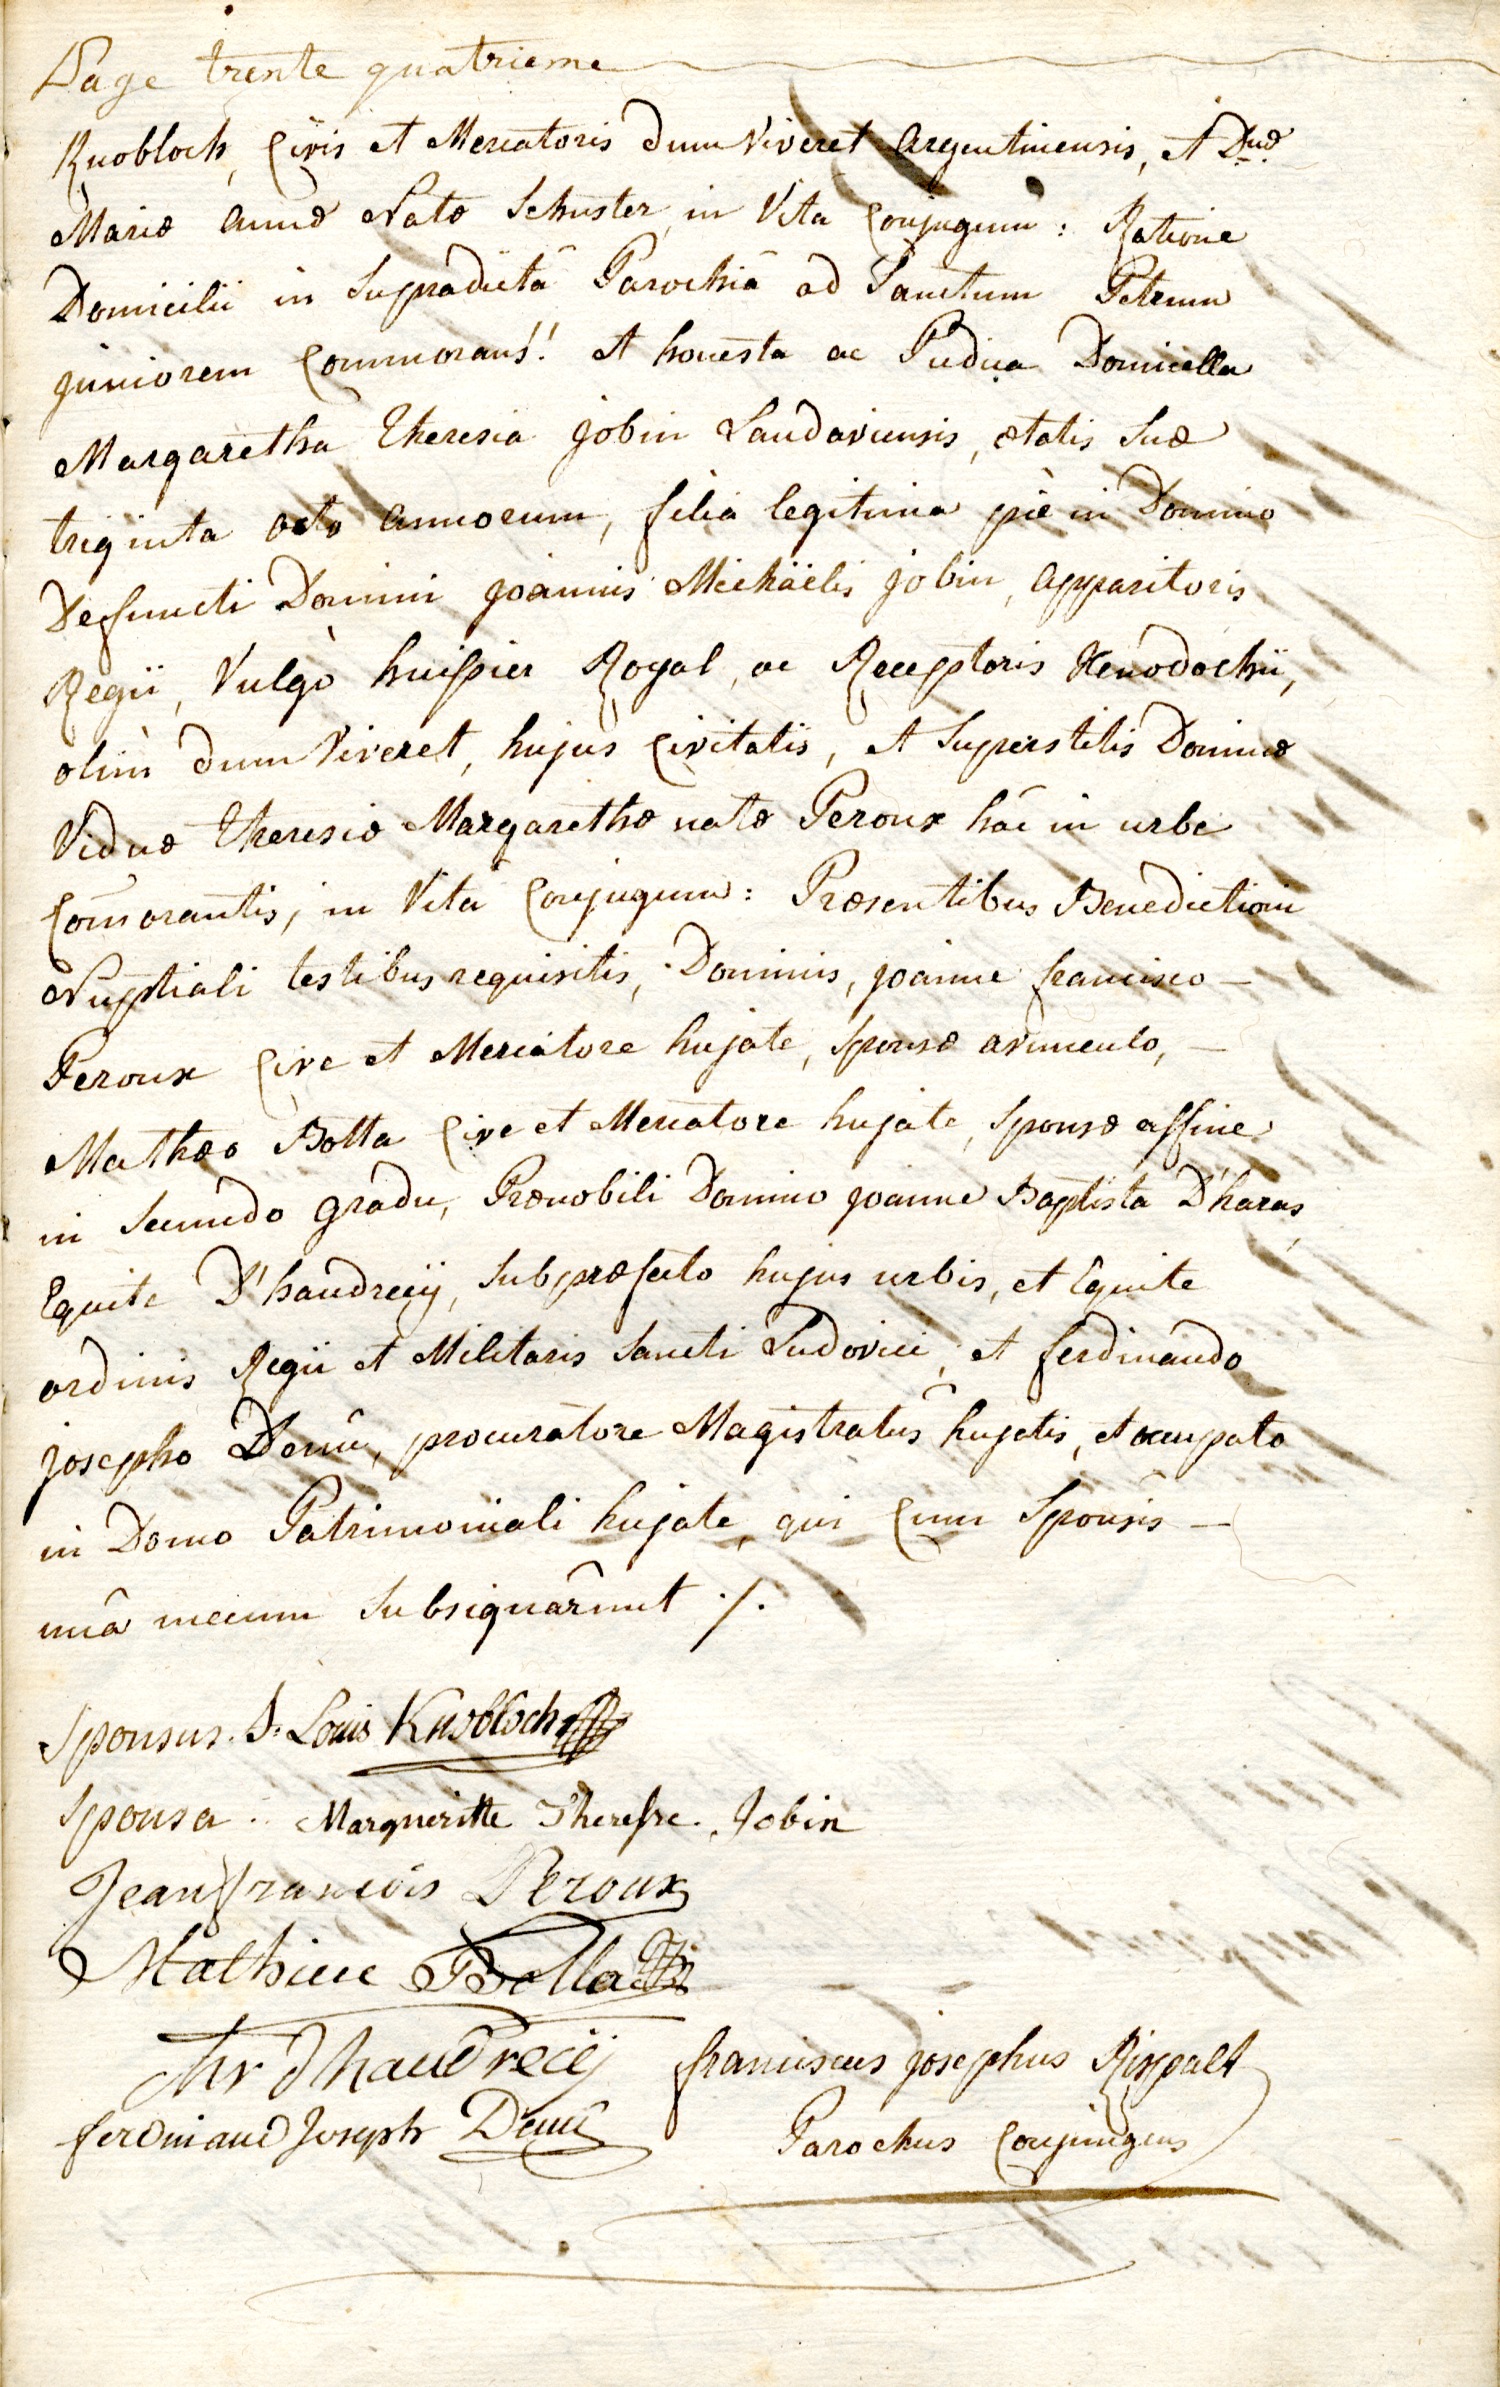 Page trente quatrieme
Knobloch, Civis et Mercatoris dum Viveret Argentinensis, et Dnæ
Mariæ Annæ Natæ Schuster, in Vita Conjugum: Ratione
Domicilii in Supradictâ Parochiâ ad Sanctum Petrum
juniorem Commorans!! et honesta ac Pudica Domicella
Margaretha Theresia jobin Landaviensis, ætatis Suæ
triginta octo annorum, filia legitima piè in Domino
Defuncti Domini joannis Michäelis jobin, apparitoris
Regii, Vulgò huissier Royal, ac Receptoris Xenodochii,
olim dum Viveret, hujus Civitatis, et Superstitis Dominæ
Viduæ Theresiæ Margarethæ natæ Peroux hâc in urbe
Com̄orantis, in Vita Conjugum: Præsentibus Benedictioni
Nuptiali testibus requisitis, Dominis, joanne francisco —
Peroux Cive et Mercatore hujate, Sponsæ avunculo, —
Mathæo Botta Cive et Mercatore hujate, Sponsæ affine
in Secundo gradu, Prænobili Domino joanne Baptista D'haras,
Equite D'haudrecÿ, Subpræfecto hujus urbis, et Equite
ordinis Regii et Militaris Sancti Ludovici, et ferdinando
josepho Demû, procuratore Magistratûs hujatis, et occupato
in Domo Patrimoniali hujate, qui Cum Sponsis —
unâ mecum Subsignârunt ./.
Sponsus. J. Louis Knobloch
Sponsa. Margueritte Therese. Jobin
Jean francois Peroux
Mathieu Botta
Chr d'haudrecÿ franciscus josephus Rippalt
ferdinand Joseph Demû Parochus Conjungens